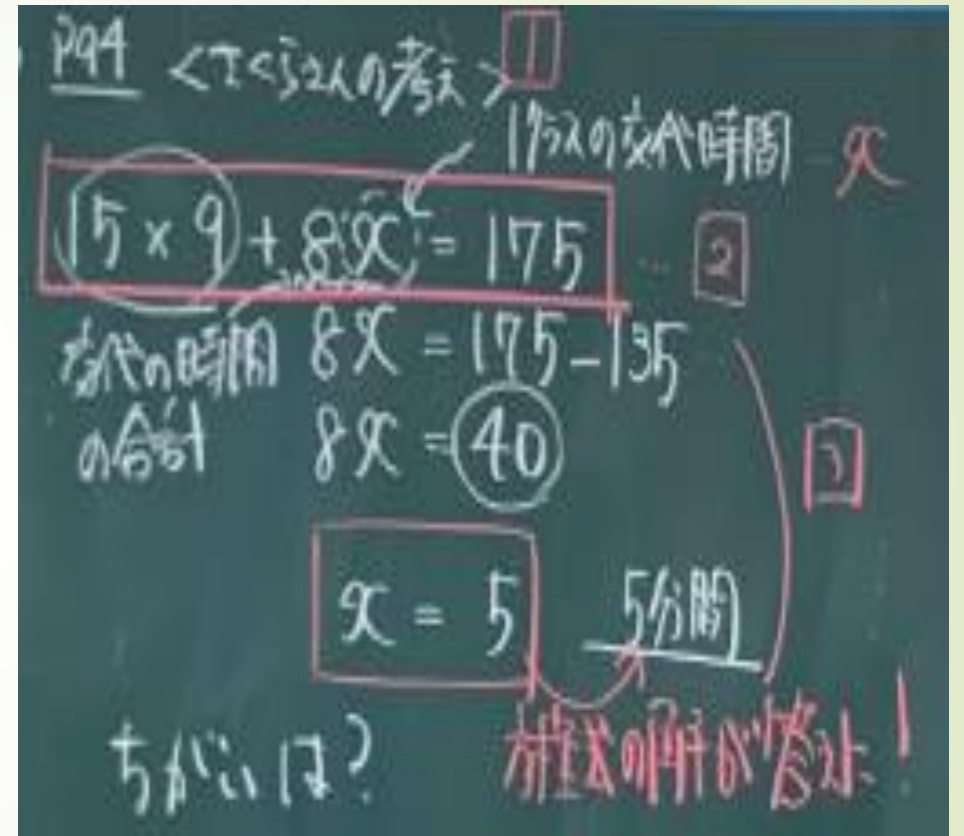 P94 <さくらさんの考え> 1
1クラスの交代時間 x
15×9+8x=175 … 2
交代の時間の合計
8x=175-135
8x=40
3
x=5 5分間
ちがいは？ 方程式の解が答えに！